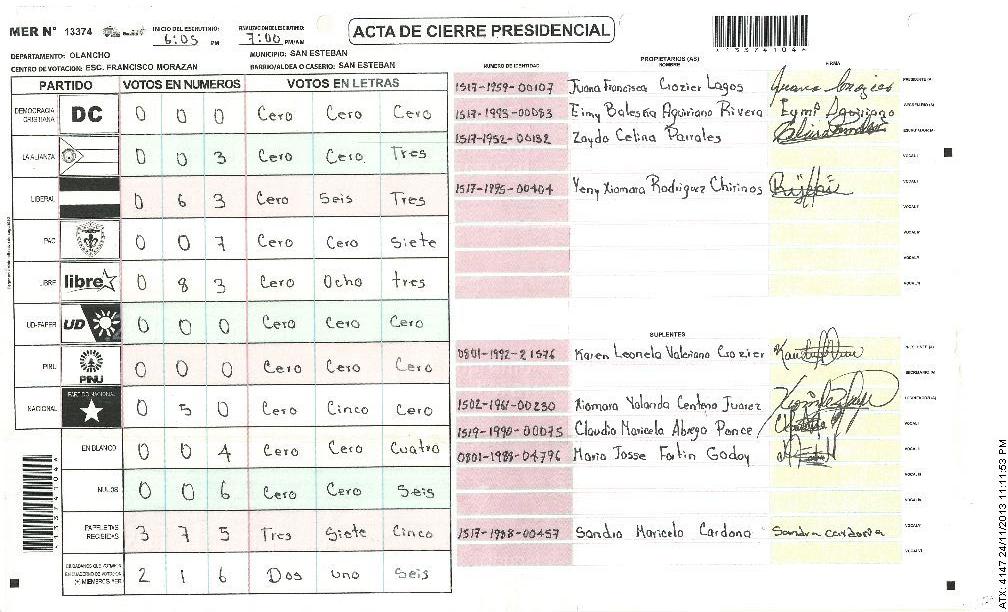 MER N° 13374
INICIO DEL ESCRUTINIO: 6:05 PM
FINALIZACION DEL ESCRUTINIO: 7:00 PM/AM
ACTA DE CIERRE PRESIDENCIAL
133741044
DEPARTAMENTO: OLANCHO
MUNICIPIO: SAN ESTEBAN
CENTRO DE VOTACION: ESC. FRANCISCO MORAZAN
BARRIO/ALDEA O CASERIO: SAN ESTEBAN
PARTIDO VOTOS EN NUMEROS VOTOS EN LETRAS
DEMOCRACIA CRISTIANA DC 0 0 0 Cero Cero Cero
LA ALIANZA 0 0 3 Cero Cero. Tres
LIBERAL 0 6 3 Cero Seis Tres
PAC 0 0 7 Cero Cero Siete
LIBRE libre 0 8 3 Cero Ocho tres
UD-FAPER UD 0 0 0 Cero Cero Cero
PINU PINU 0 0 0 Cero Cero Cero
NACIONAL PARTIDO NACIONAL 0 5 0 Cero Cinco Cero
EN BLANCO 0 0 4 Cero Cero Cuatro
NULOS 0 0 6 Cero Cero Seis
PAPELETAS RECIBIDAS 3 7 5 Tres Siete Cinco
CIUDADANOS QUE VOTARON EN CUADERNO DE VOTACION (+) MIEMBROS MER 2 1 6 Dos uno Seis
NUMERO DE IDENTIDAD PROPIETARIOS (AS) NOMBRE FIRMA
1517-1959-00107 Juana Francisca Crozier Lagos PRESIDENTE/A
1517-1993-00083 Eimy Balesña Aguiriano Rivera SECRETARIO(A)
1517-1952-00132 Zayda Celina Parrales ESCRUTADOR(A)
VOCAL I
1517-1995-00404 Yeny Xiomara Rodriguez Chirinos
SUPLENTES
0801-1992-21576 Karen Leonela Valeriano Crozier
SECRETARIO (A)
1502-1961-00230 Xiomara Yolanda Centeno Juarez
1519-1990-00075 Claudia Maricela Abrego Ponce
0801-1988-04796 Mario Josse Fortin Godoy
1517-1988-00457 Sandra Maricela Cardona Sandra cardona
ATX: 4147 24/11/2013 11:11:53 PM